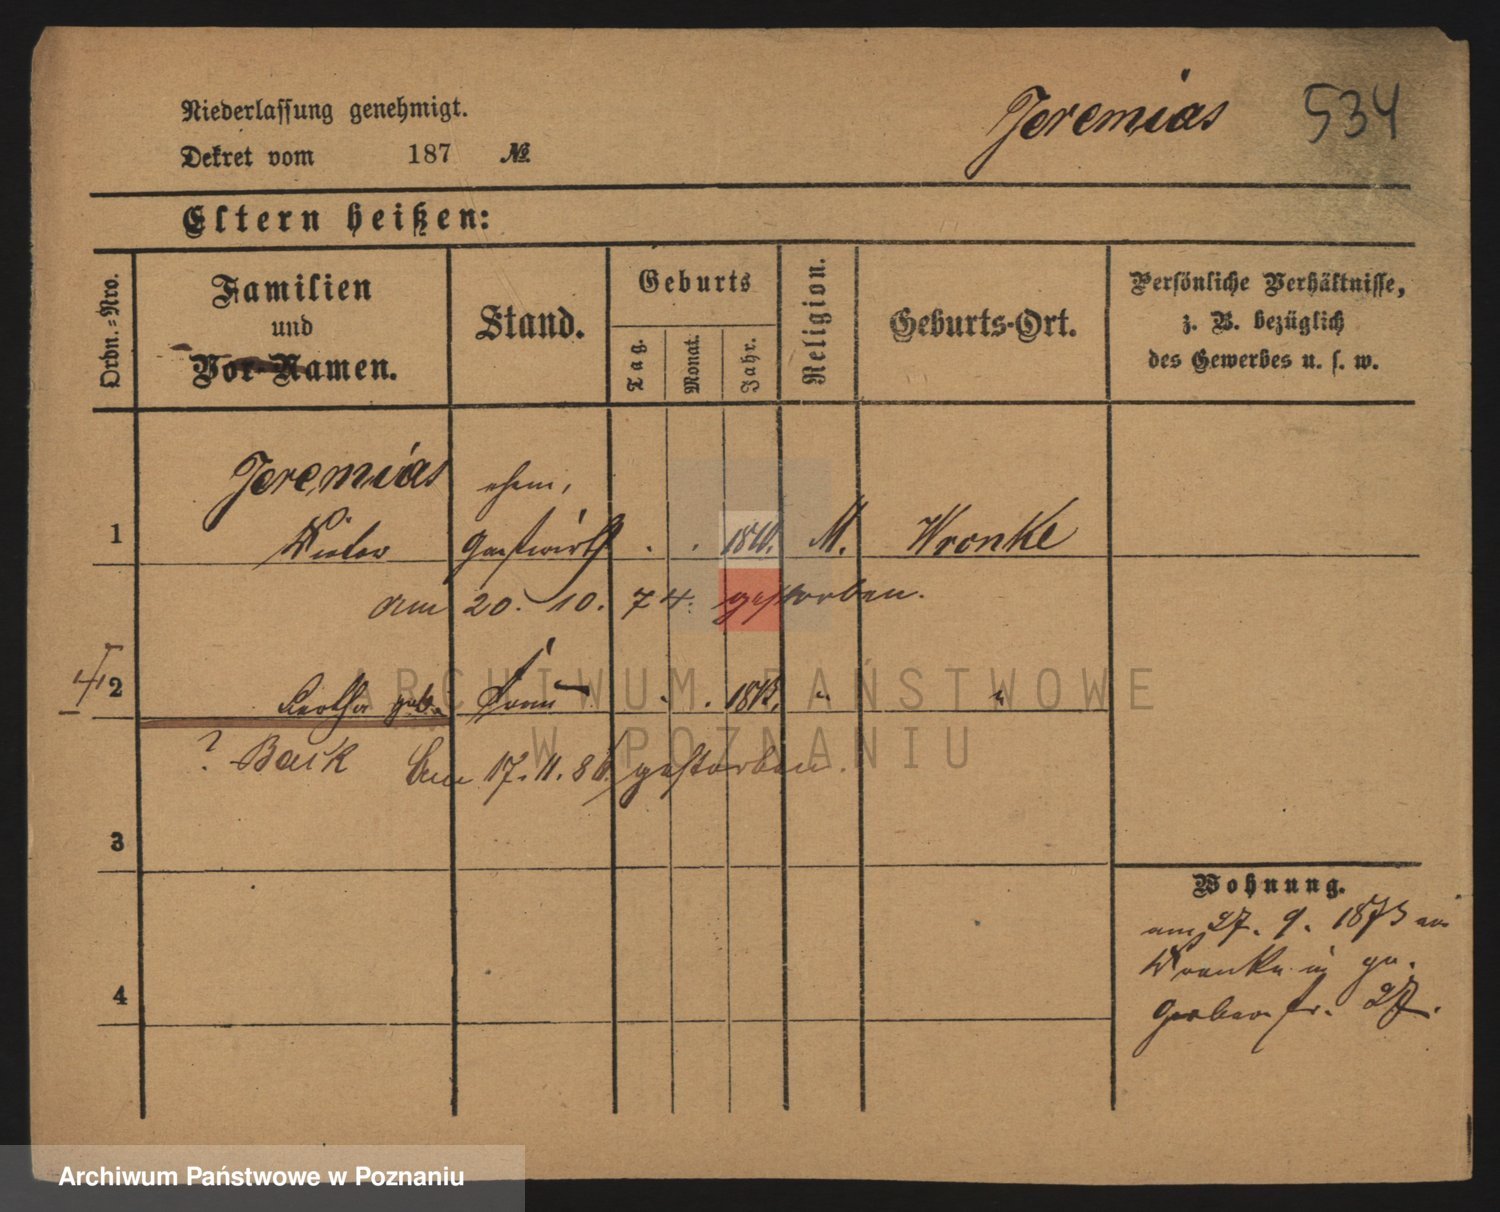 Niederlassung genehmigt.
Jeremias 534
Dekret vom 187 №
Eltern heißen:
Ordn.=Nro.
Familien
und
Vor-Namen.
Stand.
Geburts
Tag.
Monat.
Jahr.
Religion.
Geburts-Ort.
Persönliche Verhältnisse,
z. B. bezüglich
des Gewerbes u. s. w.
Jeremias ehem.
1 Gastwirth . . M. Wronke
am 20. 10. 74. gestorben.
2 Bertha geb. Frau . . " "
? Back Am 17. 11. 86 gestorben.
3
Wohnung.
am 27. 9. 1873 aus
Wronke in gr.
Gerber str. 27.
4
ARCHIWUM PAŃSTWOWE
W POZNANIU
Archiwum Państwowe w Poznaniu